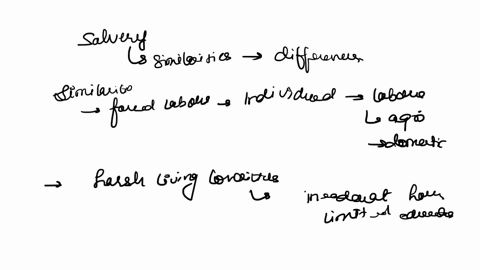 Salvery
↳ similairities → differences
Similarites
→ forced labour → Individual → labour
↳ agri
→ domestic
→ harsh living conditions
↳ inadequat
limited